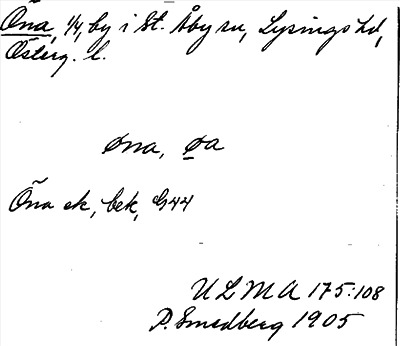 Õna, 1/4, by i St. Åby sn, Lysings hd,
Österg. l.
øna, ø̲a
Õna ek, bek, G44
ULMA 175:108
P. Smedberg 1905